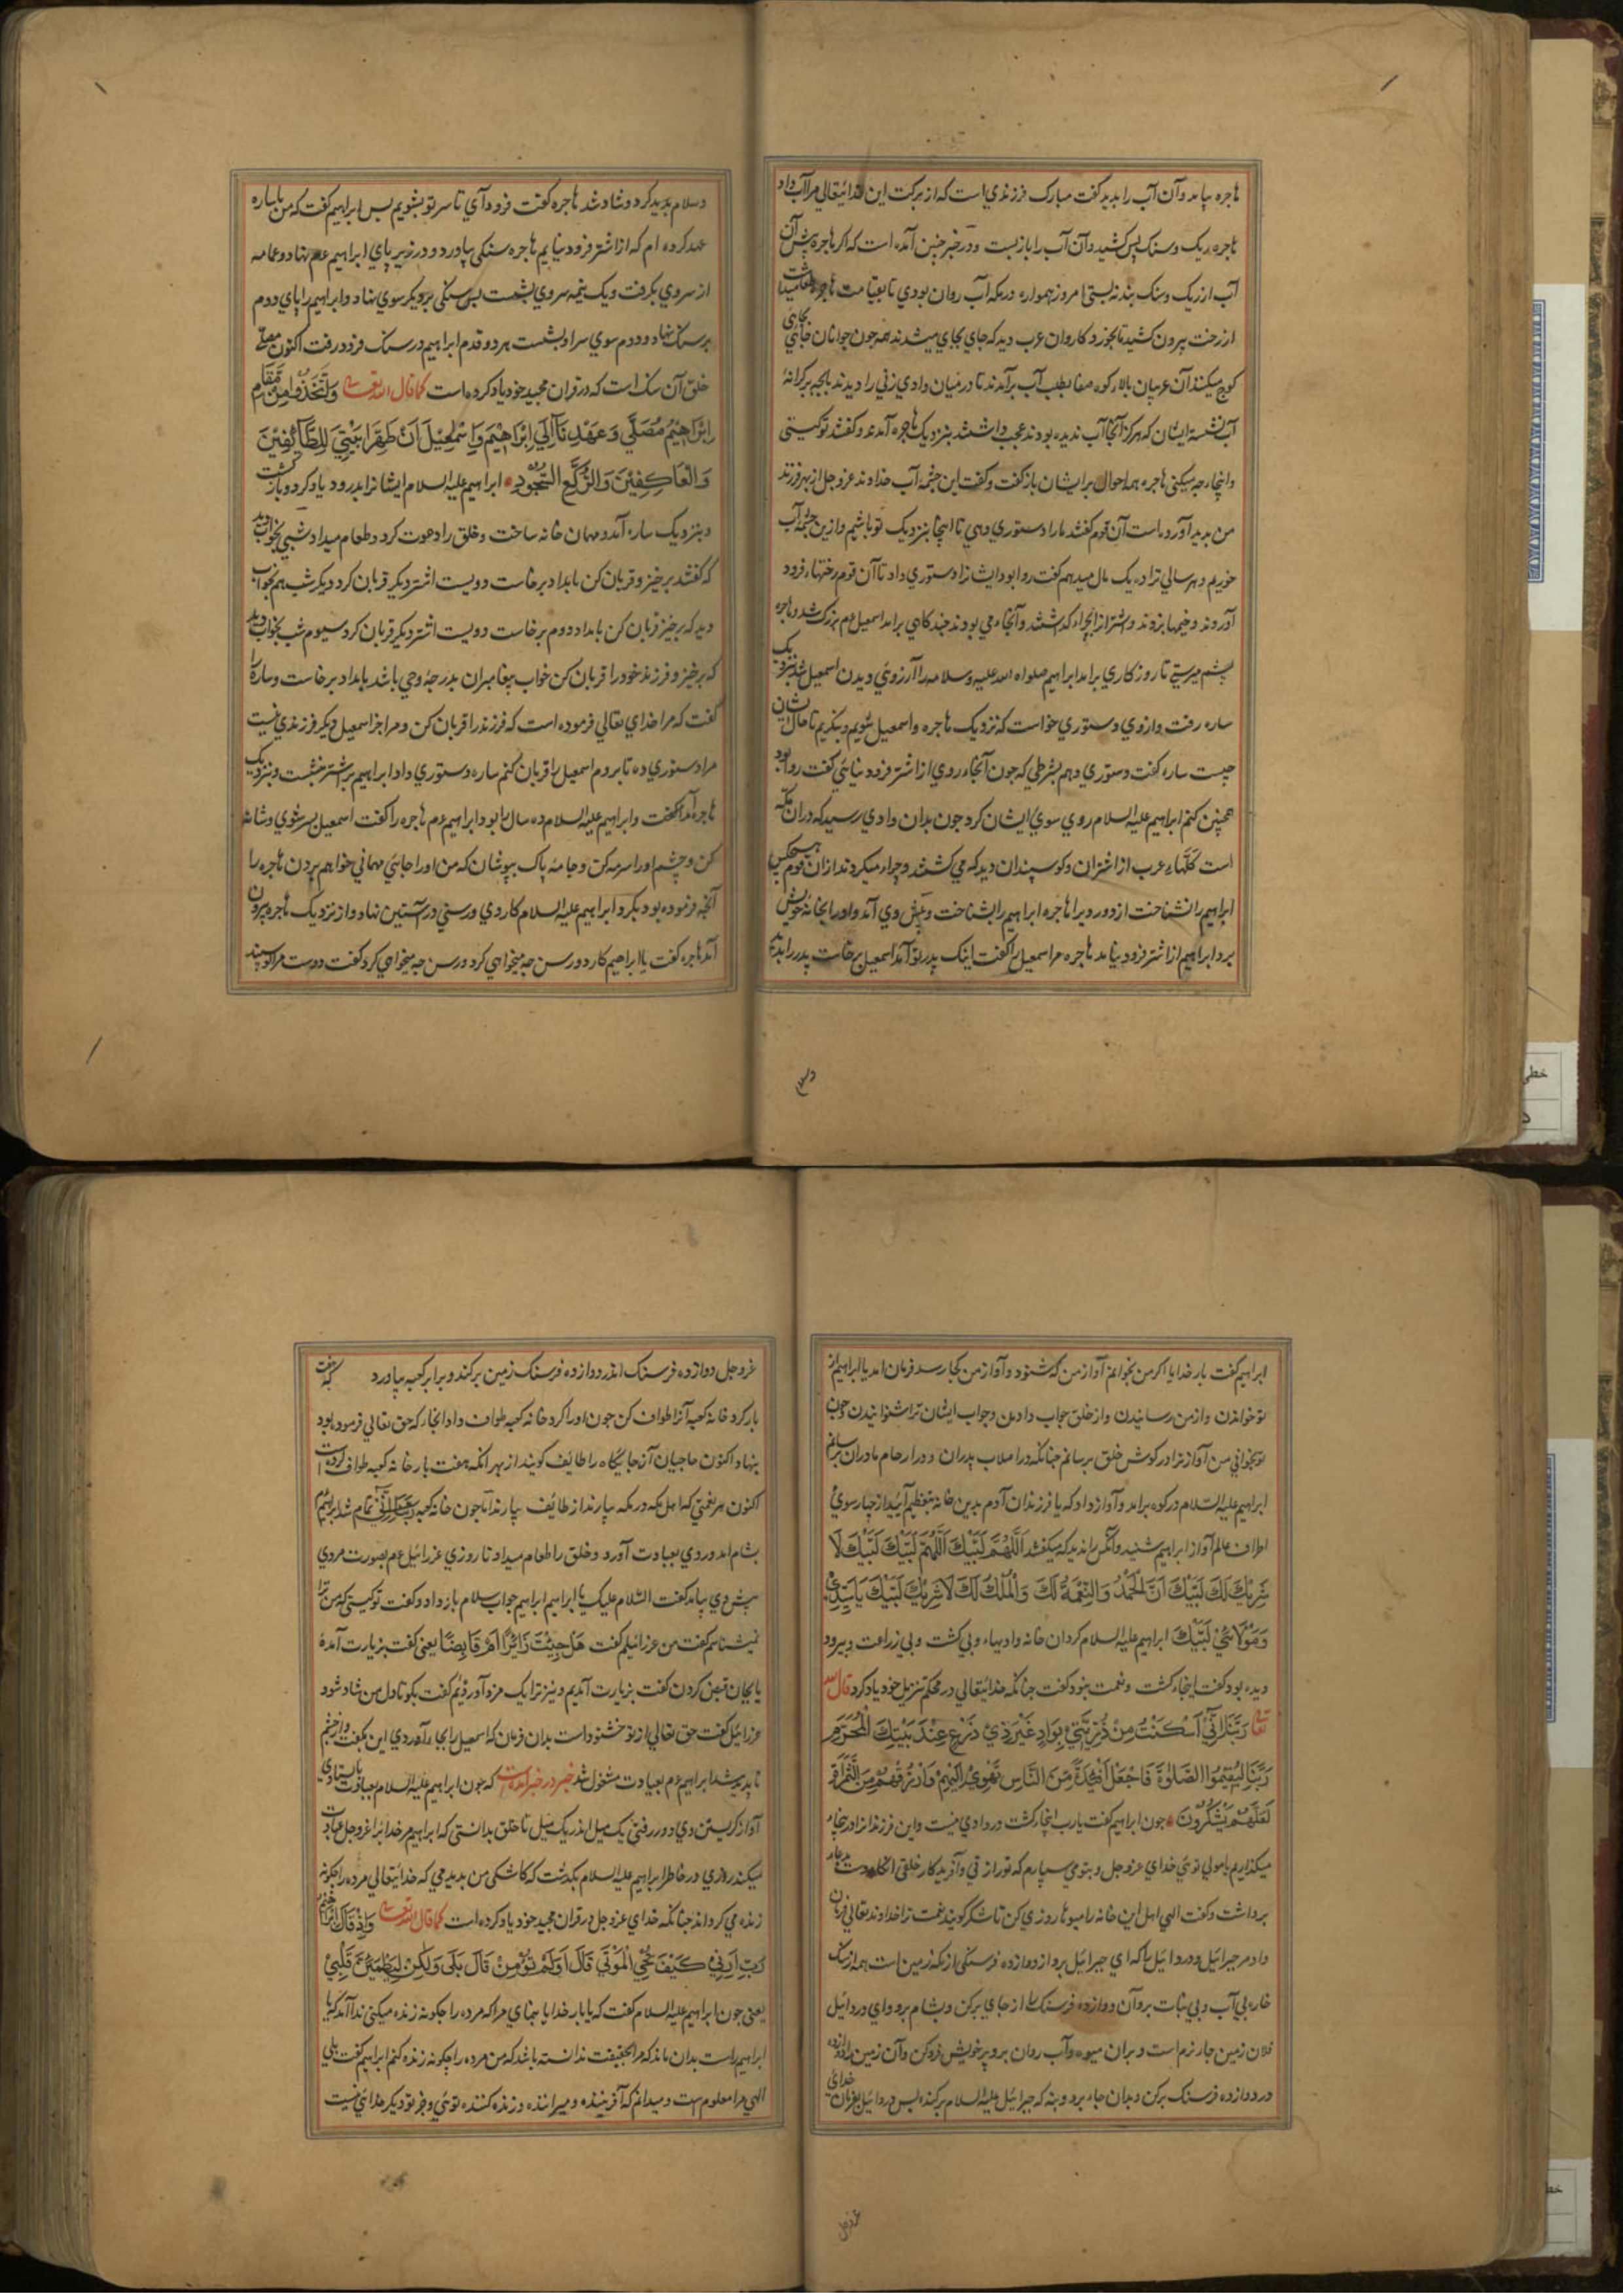 هاجره بیامد و آن آب را بدید گفت مبارک فرزندي است که از برکت این خدائیتعالي مرا آب داد
هاجره ریک و سنک پس کشید و آن آب را باز بست و در خبر چنین آمده است که اکر هاجره پیش آن
آب از ریک و سنک بند نه بستي امروز همواره در مکه آب روان بودي تا بقیامت هاجره
از رخت بیرون کشید تا بخورد کاروان عرب دید که جاي بجاي میشدند همه جون جوانان جائي بجاي
کوچ میکنند آن عربیان بالاء کوه صفا بطلب آب برآمدند تا در میان وادي زني را دیدند با بجه بر کرانهٔ
آب نشسته ایشان که هرکز آنجا آب ندیده بودند عجب داشتند بنزدیک هاجره آمدند و گفتند تو کیستي
و اینجا چه میکني هاجره همه احوال برایشان باز گفت و گفت این چشمهٔ آب خداوند عز و جل از بهر فرزند
من بدید آورده است آن قوم گفتند ما را دستوري دهي تا اینجا بنزدیک تو باشیم و ازین چشمه آب
خوریم و هر سالي ترا ده یک مال میدهیم گفت روا بود ایشانرا دستوري داد تا آن قوم رختها فرود
آوردند و خیمها بزدند و اشتر از انجا بکذاشتند و آنجا مي بودند چند کاهي برآمد اسمعیل عم بزرک شد و هاجره
پشم میرستي تا روزکاري برآمد ابراهیم صلواه الله علیه و سلامه را آرزوي دیدن اسمعیل شد بنزدیک
ساره رفت و از وي دستوري خواست که نزدیک هاجره و اسمعیل شویم و بنکریم تا حال ایشان
چیست ساره گفت دستوري دهم بشرطي که چون آنجا روي از اشتر فرود نیائي گفت روا بود
همچنین کنم ابراهیم علیه السلام روي سوي ایشان کرد چون بدان وادي رسید که در آن مکه
است کلهاء عرب از اشتران و کوسپندان دید که مي کشتند و چرا میکردند از آن قوم هیچکس
ابراهیم را نشناخت از دور ویرا هاجره ابراهیم را بشناخت و پیش وي آمد و او را بخانهٔ خویش
برد ابراهیم از اشتر فرود نیامد هاجره مر اسمعیل را گفت اینک پدر تو آمد اسمعیل برخاست پدر را بدید
وسلم
و سلام بدید کرد و شاد شد هاجره گفت فرود آي تا سر تو بشویم پس ابراهیم گفت که من با ساره
عهد کرده ام که از اشتر فرود نیایم هاجره سنکي بیاورد و در زیر پاي ابراهیم عم نهاد و عمامه
از سر وي بکرفت و یک نیمه سر وي بشست پس سنکي بر دیکر سوي نهاد و ابراهیم را پاي دوم
بر سنک نهاد و دوم سوي سر او بشست هر دو قدم ابراهیم در سنک فرو رفت اکنون مصلي
خلق آن سنک است که در قران مجید خود یاد کرده است کما قال الله تعالي وَاتَّخَذُوا مِنْ مَقَامِ
اِبْرَاهِیْمَ مُصَلًّي وَعَهِدْنَآ اِلَي اِبْرَاهِیْمَ وَاِسْمٰعِیْلَ اَنْ طَهِّرَا بَیْتِيَ لِلطَّآئِفِیْنَ
وَالْعَاکِفِیْنَ وَالرُّکَّعِ السُّجُوْدِ ابراهیم علیه السلام ایشانرا بدرود یاد کرد و باز کشت
و بنزدیک ساره آمد و مهمان خانه ساخت و خلق را دعوت کرد و طعام میداد شبي بخواب دید
که گفتند برخیز و قربان کن بامداد برخاست دویست اشتر دیکر قربان کرد دیکر شب هم بخواب
دید که برخیز قربان کن بامداد دوم برخاست دویست اشتر دیکر قربان کرد سیوم شب بخواب دید
که برخیز و فرزند خود را قربان کن خواب پیغامبران بدرجهٔ وحي باشد بامداد برخاست و ساره را
گفت که مرا خداي تعالي فرموده است که فرزند را قربان کن و مرا جز اسمعیل دیکر فرزندي نیست
مرا دستوري ده تا بروم اسمعیل را قربان کنم ساره دستوري داد ابراهیم بر اشتر نشست و بنزدیک
هاجره آمد گفت و ابراهیم علیه السلام ده ساله بود ابراهیم عم هاجره را گفت اسمعیل را سر شوي و شانه
کن و چشم او را سرمه کن و جامهٔ پاک بپوشان که من او را جائي مهماني خواهم بردن هاجره را
آنچه فرموده بود بکرد ابراهیم علیه السلام کاردي و رسني در آستین نهاد و از نزدیک هاجره بیرون
آمد هاجره گفت یا ابراهیم کارد و رسن چه میخواهي کرد و رسن چه میخواهي کرد گفت دوست مرا کوسپند
ابراهیم گفت بار خدایا اکر من بخوانم آواز من که شنود و آواز من کجا رسد فرمان آمد یا ابراهیم از
تو خواندن و از من رسانیدن و از خلق جواب دادن و جواب ایشان ترا شنوانیدن چون
تو بخواني من آواز ترا در کوش خلق برسانم چنانکه در اصلاب پدران و در ارحام مادران برسانم
ابراهیم علیه السلام در کوه برآمد و آواز داد که یا فرزندان آدم بدین خانه بتعظیم آئید از چهار سوي
اطراف عالم آواز ابراهیم شنید و آنکس را ندید که میکفتند اَللّٰهُمَّ لَبَّیْکَ اَللّٰهُمَّ لَبَّیْکَ لَبَّیْکَ لَا
شَرِیْکَ لَکَ لَبَّیْکَ اَنَّ الْحَمْدَ وَالنِّعْمَةَ لَکَ وَالْمُلْکَ لَکَ لَا شَرِیْکَ لَبَّیْکَ یَا سَیِّدِيْ
وَمَوْلَائِيْ لَبَّیْکَ ابراهیم علیه السلام کردان خانه وادیهاء و بي کشت و بي زراعت و بي رود
دیده بود گفت اینجا کشت و نعمت نبود گفت چنانکه خدائیتعالي در محکم تنزیل خود یاد کرد قال الله
تعالي رَبَّنَآ اِنِّيْ اَسْکَنْتُ مِنْ ذُرِّیَّتِيْ بِوَادٍ غَیْرَ ذِيْ زَرْعٍ عِنْدَ بَیْتِکَ الْمُحَرَّمِ
رَبَّنَا لِیُقِیْمُوا الصَّلٰوةَ فَاجْعَلْ اَفْئِدَةً مِّنَ النَّاسِ تَهْوِيْ اِلَیْهِمْ وَارْزُقْهُمْ مِّنَ الثَّمَرَاتِ
لَعَلَّهُمْ یَشْکُرُوْنَ چون ابراهیم گفت یارب اینجا کشت و رود وادي نیست و این فرزندان را در ینجاء
میکذاریم یا مولي توئي خداي عز و جل و بتو مي سپارم که تو رازقي و آفریدکار خلقي دست بدعاء
برداشت و گفت الهي اهل این خانه را میوها روزي کن تا شکر کویند نعمت ترا خداوند تعالي فرمان
داد مر جبرائیل و دردائیل را که اي جبرائیل برو از دوازده فرسنکي از مکه زمین است همه از سنک
خاره بي آب و بي نبات برو آن دوازده فرسنک را از جاي برکن و بشام برو و اي دردائیل
فلان زمین جار نرم است و بران میوه و آب روان برو پر خویش فرو کن و آن زمین را دوازده
در دوازده فرسنک برکن و بدان جاء برد و بنه که جبرائیل علیه السلام برکنده پس دردائیل بفرمان خداي
عز و جل
عز و جل دوازده فرسنک اندر دوازده فرسنک زمین برکند و برابر کعبه بیاورد که هفت
بار کرد خانه کعبه آنرا طواف کن چون او را کرد خانه کعبه طواف داد انجا که حق تعالي فرموده بود
بنهاد اکنون حاجیان آن جایکاه را طائف کویند از بهر آنکه هفت بار خانه کعبه طواف کرده است
اکنون هر نعمتي که اهل مکه در مکه بیارند از طائف بیارند اما چون خانه کعبه تمام شد ابراهیم
بشام آمد و روي بعبادت آورد و خلق را طعام میداد تا روزي عزرائیل عم بصورت مردي
پیش وي بیامد گفت السلام علیک یا ابراهیم ابراهیم جواب سلام باز داد و گفت تو کیستي که من ترا
نمیشناسم گفت من عزرائیلم گفت هَلْ جِیْئَتَ زَائِرًا اَمْ قَابِضًا یعني گفت بزیارت آمدهٔ
یا بجان قبض کردن گفت بزیارت آمدیم و نیز ترا یک مژده آورده ئیم گفت بکو تا دل من شاد شود
عزرائیل گفت حق تعالي از تو خشنود است بدان فرمان که اسمعیل را بجاء آوردي این بکفت و از چشم
ناپدید شد ابراهیم عم بعبادت مشغول شد خبر در خبر آمده است که چون ابراهیم علیه السلام بعبادت باستادي
آواز کریستن وي دور رفتي یک میل اندر یک میل تا خلق بدانستي که ابراهیم مر خدایرا عز و جل عبادت
میکند روزي در خاطر ابراهیم علیه السلام بکذشت که کاشکي من بدیدمي که خدائیتعالي مرده را چکونه
زنده مي کرداند چنانکه خداي عز و جل در قران مجید خود یاد کرده است کما قال الله تعالي وَاِذْ قَالَ اِبْرَاهِیْمُ
رَبِّ اَرِنِيْ کَیْفَ تُحْيِ الْمَوْتٰي قَالَ اَوَلَمْ تُؤْمِنْ قَالَ بَلٰي وَلٰکِنْ لِیَطْمَئِنَّ قَلْبِيْ
یعني چون ابراهیم علیه السلام گفت که یا بار خدایا بنماي مرا که مرده را چکونه زنده میکني ندا آمد که یا
ابراهیم راست بدان ماند که مرا بحقیقت ندانسته باشد که من مرده را چکونه زنده کنم ابراهیم گفت بلي
الهي مرا معلوم است و میدانم که آفریننده و میراننده و زنده کننده توئي و جز تو دیکر خدائي نیست
خطي